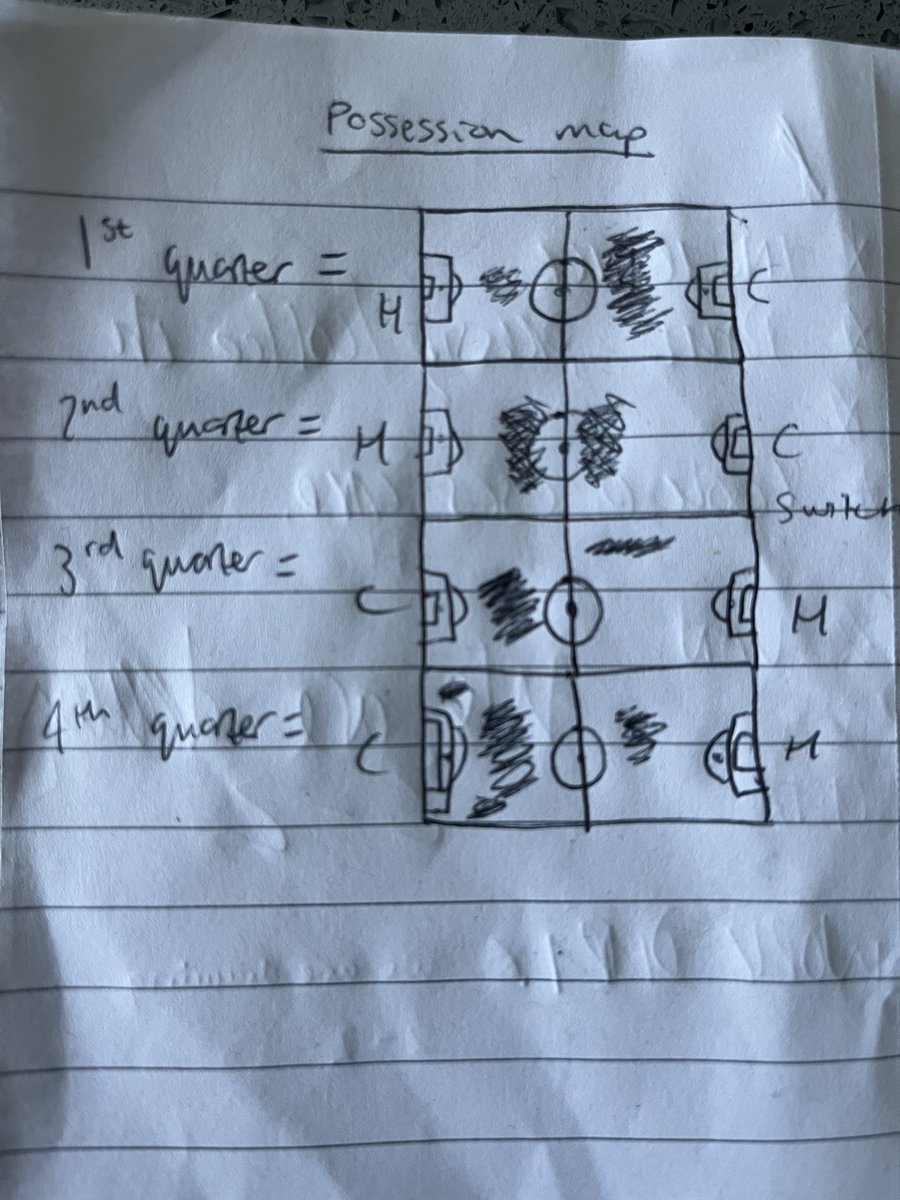 Possession map
1st quarter =
H
C
2nd quarter =
H
C
Switch
3rd quarter =
C
H
4th quarter =
C
H